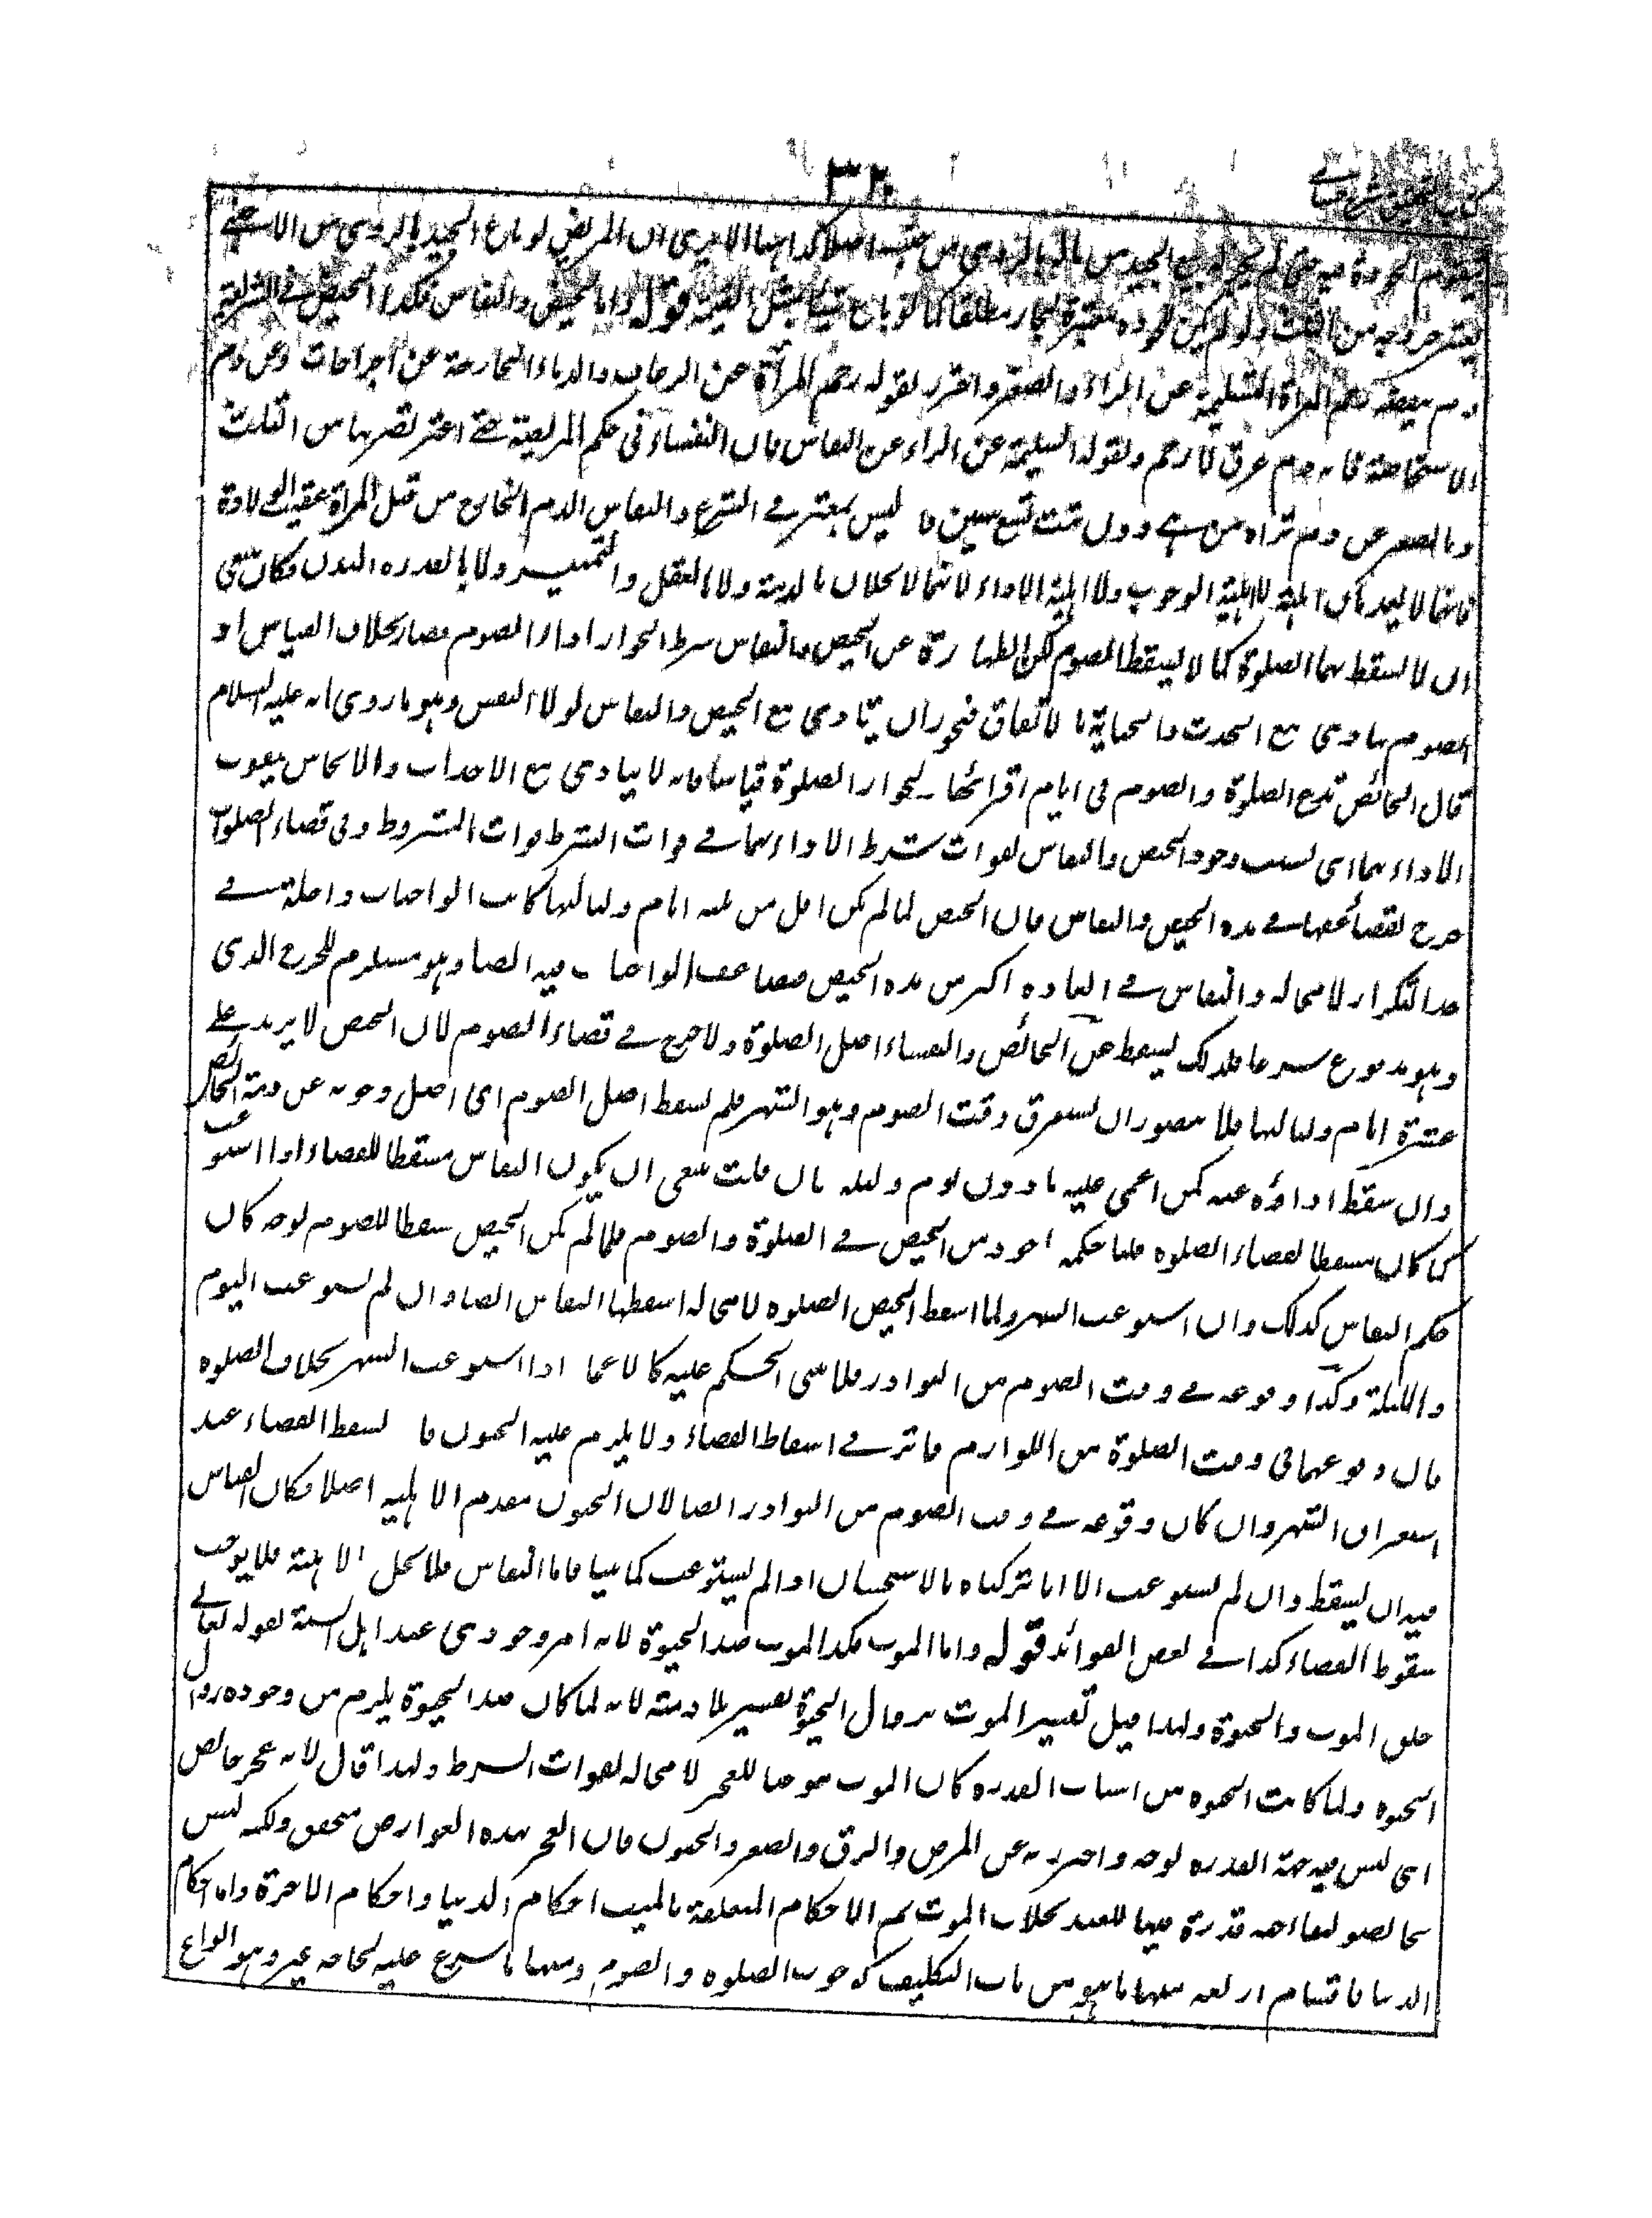 ٣٢٠
بتقوم الجودة فيه حتى لم يجز بيع الجيد من ماله بالردى من اصلا كذا ههنا الا يرى ان المريض لو باع الجيد بالردى من الاجنبى
يعتبر خروجه من الثلث ولو لم يكن الجودة معتبرة لجاز مطلقا كما لو باع شيئا بمثل القيمة قوله واما الحيض والنفاس فكذا الحيض فى الشريعة
دم ينفضه رحم المراة السليمة عن الداء والصغر واحترز بقوله رحم المرأة عن الرعاف والدماء الخارجة عن الجراحات وعن دم
الاستحاضة فانه دم عرق لا رحم وبقوله السليمة عن الداء عن النفاس فان النفساء فى حكم المريضة حتى اعتبر تصرفها من الثلث
وبالصغر عن دم تراه من هى دون بنت تسع سنين فانه ليس بمعتبر فى الشرع والنفاس الدم الخارج من قبل المرأة عقيب الولادة
فانهما لا يعدمان اهلية لا اهلية الوجوب ولا اهلية الاداء لانهما لا يخلان بالذمة ولا بالعقل والتمييز ولا بالقدرة البدن فكان ينبغى
ان لا تسقط بهما الصلوة كما لا يسقط الصوم لكن الطهارة عن الحيض والنفاس شرط لجواز اداء الصوم فصار بخلاف القياس اذ
الصوم يتادى مع الحدث والجنابة بالاتفاق فيجوز ان يتادى مع الحيض والنفاس لولا النص وهو ما روى انه عليه السلام
قال الحائض تدع الصلوة والصوم فى ايام اقرائها ولجواز الصلوة قياسا فانه لا يتادى مع الاحداث والانجاس فيفوت
الاداء بهما اى بسبب وجود الحيض والنفاس لفوات شرط الاداء بهما فى فوات الشرط فوات المشروط وفى قضاء الصلوات
حرج لتضاعفها فى مدة الحيض والنفاس فان الحيض لما لم يكن اقل من ثلثه ايام ولياليها كانت الواجبات داخلة فى
حد التكرار لا محالة والنفاس فى العادة اكثر من مدة الحيض فتضاعف الواجبات فيه ايضا وهو مستلزم للحرج الذى
وهو مدفوع شرعا فلذلك يسقط عن الحائض والنفساء اصل الصلوة ولا حرج فى قضاء الصوم لان الحيض لا يزيد على
عشرة ايام ولياليها فلا يتصور ان يستغرق وقت الصوم وهو الشهر فلم يسقط اصل الصوم اى اصل وجوبه عن ذمة الحائض
وان سقط اداؤه عنه كمن اغمى عليه ما دون يوم وليلة فان قلت ينبغى ان يكون النفاس مسقطا للقضاء اذا استوعب
كما كان مسقطا لقضاء الصلوة قلنا حكمه اخوذ من الحيض فى الصلوة والصوم فلما لم يكن الحيض مسقطا للصوم بوجه كان
حكم النفاس كذلك وان استوعب الشهر ولما اسقط الحيض الصلوة لا محالة اسقطها النفاس ايضا وان لم يستوعب اليوم
والليلة وكذا وقوعه فى وقت الصوم من النوادر فلا يبنى الحكم عليه كالاغماء اذا استوعب الشهر بخلاف الصلوة
فان وقوعهما فى وقت الصلوة من اللوازم فاثر فى اسقاط القضاء ولا يلزم عليه الجنون فانه يسقط القضاء عند
استغراق الشهر وان كان وقوعه فى وقت الصوم من النوادر ايضا لان الجنون معدم الاهلية اصلا فكان القياس
فيه ان يسقط وان لم يستوعب الا انا تركناه بالاستحسان اذا لم يستوعب كما بينا فاما النفاس فلا يخل الاهلية فلا يوجب
سقوط القضاء كذا فى بعض الفوائد قوله واما الموت فكذا الموت ضد الحيوة لانه امر وجودى عند اهل السنة لقوله تعالى
خلق الموت والحيوة ولهذا قيل تفسير الموت بزوال الحيوة تفسير بلازمته لانه لما كان ضد الحيوة يلزم من وجوده زوال
الحيوة ولما كانت الحيوة من اسباب القدرة كان الموت موجبا للعجز لا محالة لفوات الشرط ولهذا قال لانه عجز خالص
اى ليس فيه جهة القدرة بوجه واحترز به عن المرض والرق والصغر والجنون فان العجز بهذه العوارض متحقق ولكنه ليس
بخالص لبقاء جهة قدرة فيها للعبد بخلاف الموت ثم الاحكام المتعلقة بالميت احكام الدنيا واحكام الاخرة واما احكام
الدنيا فاقسام اربعة منها ما هو من باب التكليف كوجوب الصلوة والصوم ومنها ما شرع عليه لحاجة غيره وهو انواع